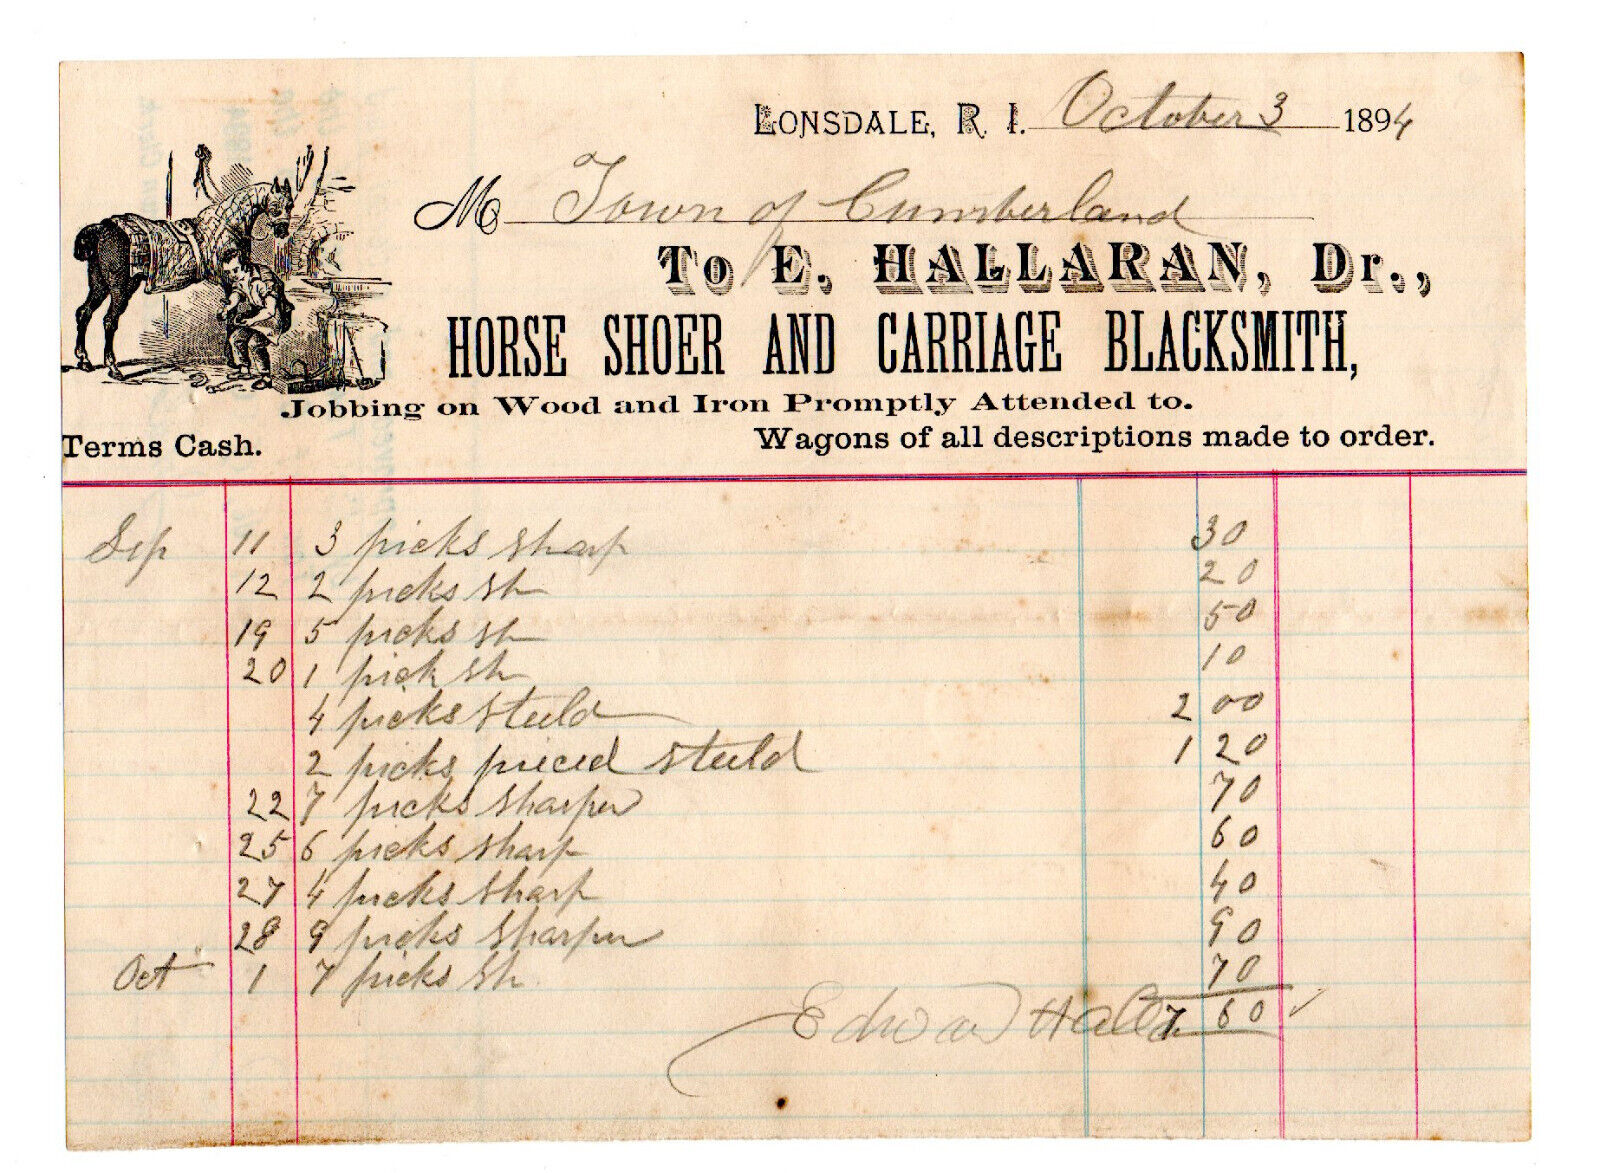 LONSDALE, R. I. October 3 1894
M Town of Cumberland
To E. HALLARAN, Dr.,
HORSE SHOER AND CARRIAGE BLACKSMITH,
Jobbing on Wood and Iron Promptly Attended to.
Terms Cash. Wagons of all descriptions made to order.
Sep 11 3 picks sharp 30
12 2 picks sh 20
19 5 picks sh 50
20 1 pick sh 10
4 picks steeld 2 00
2 picks pieced steeld 1 20
22 7 picks sharpen 70
25 6 picks sharp 60
27 4 picks sharp 40
28 9 picks sharpen 90
Oct 1 7 picks sh 70
Edward 7 60 ✓